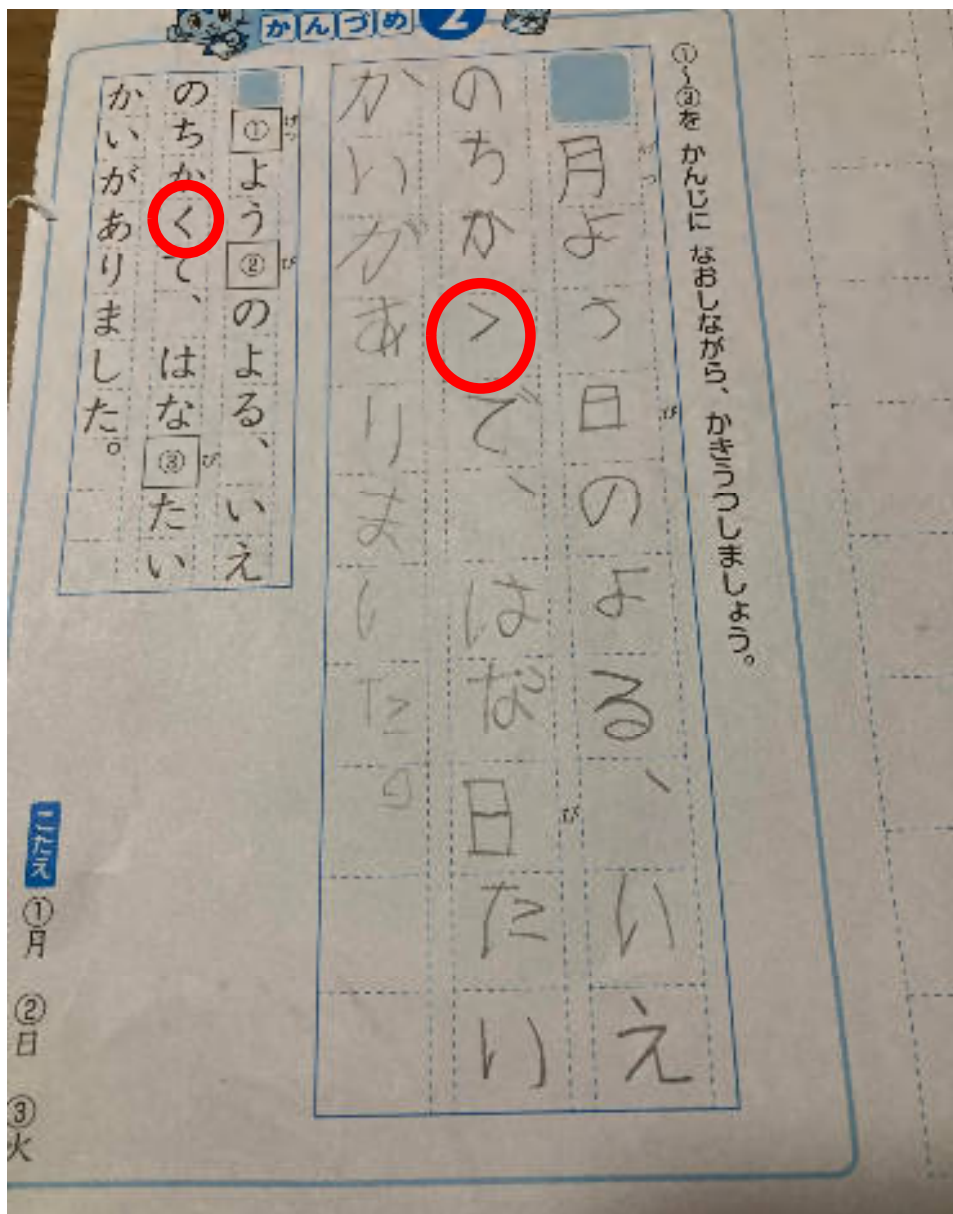 かんづめ 2
①~③を かんじに なおしながら、かきうつしましょう。
月よう日のよる、いえ
がつ
び
のちか>で、はな日たい
び
かいがありました。
①よう②のよる、いえ
げつ
び
のちかくで、はな③たい
び
かいがありました。
こたえ
①月
②日
③火